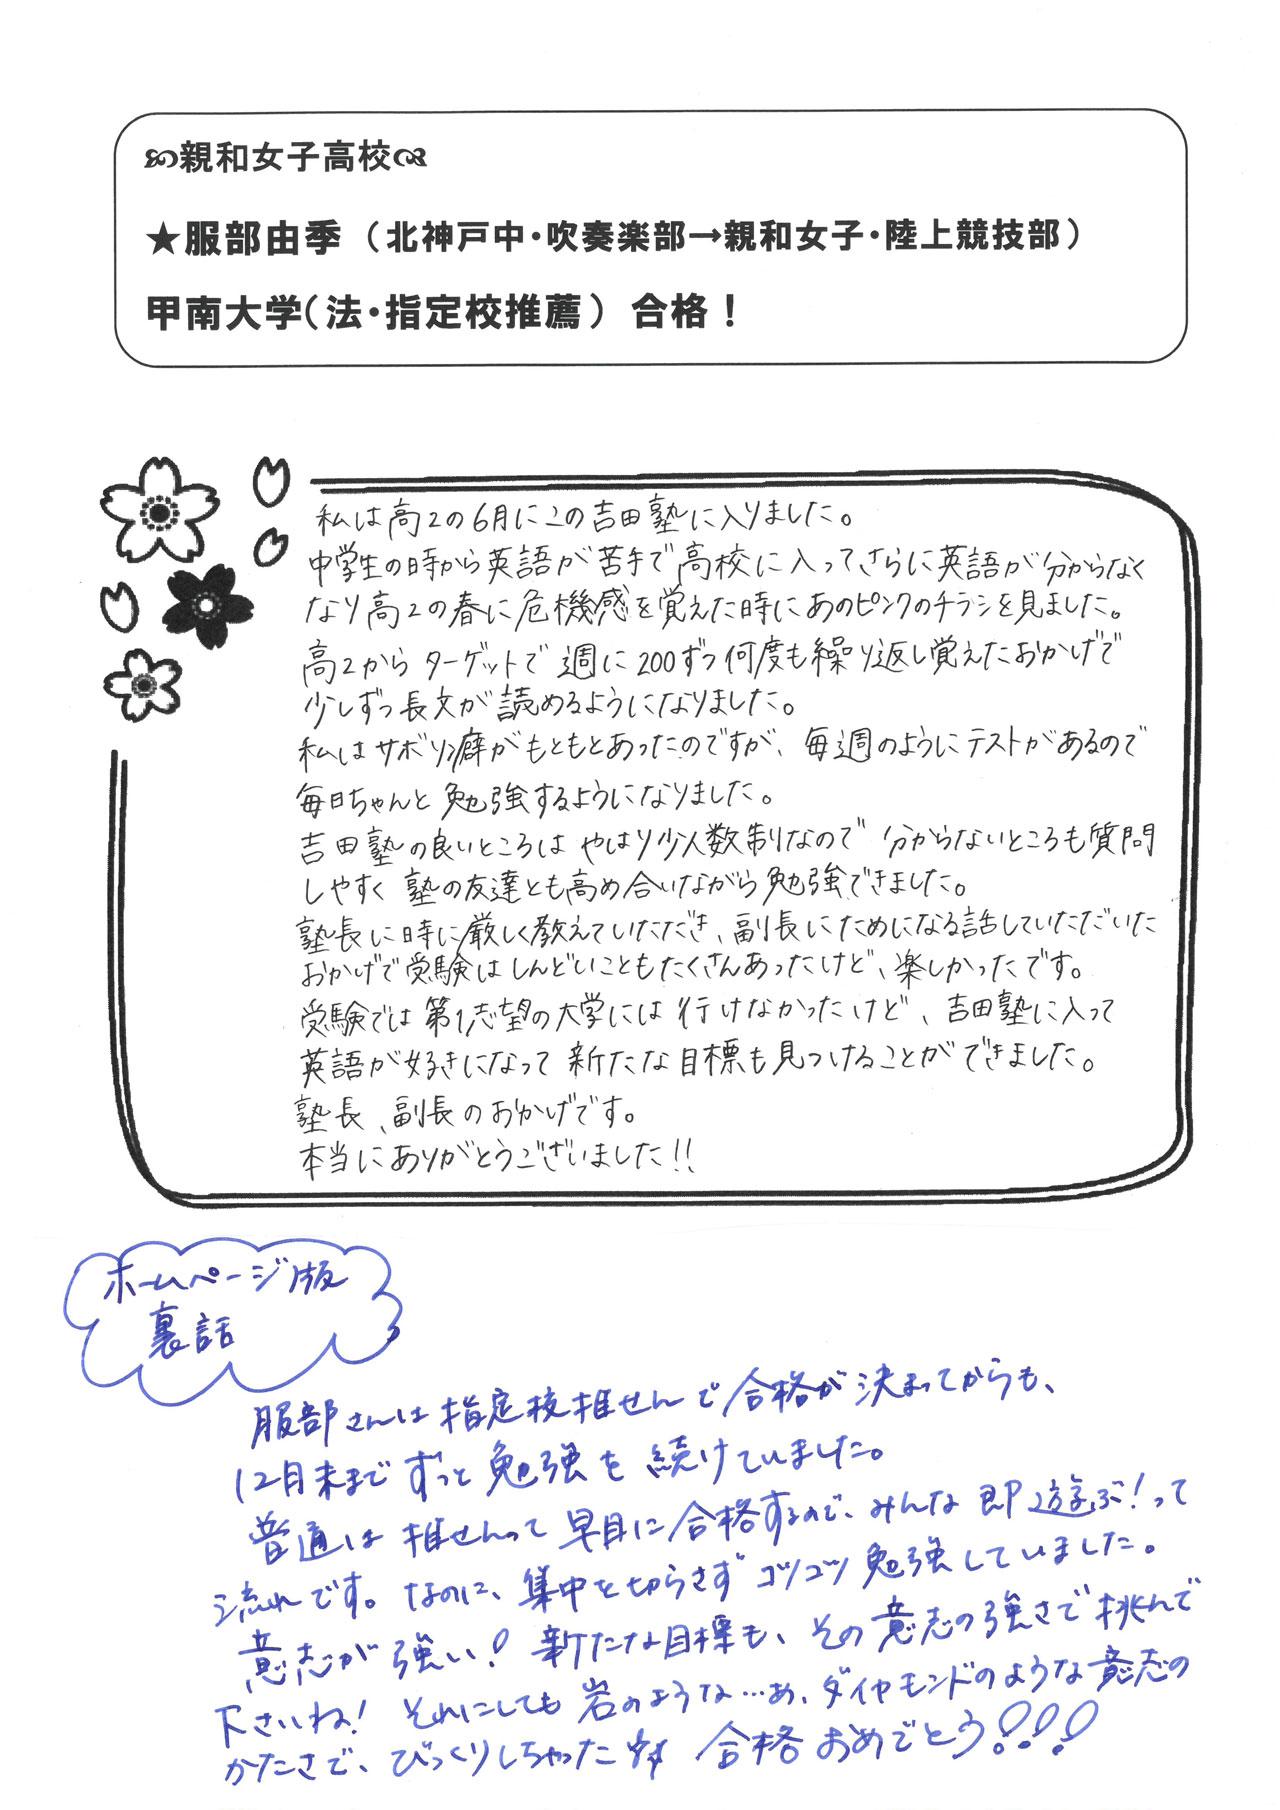 親和女子高校
★服部由季（北神戸中・吹奏楽部→親和女子・陸上競技部）
甲南大学（法・指定校推薦） 合格！
私は高2の6月にこの吉田塾に入りました。
中学生の時から英語が苦手で高校に入ってさらに英語が分からなく
なり高2の春に危機感を覚えた時にあのピンクのチラシを見ました。
高2からターゲットで週に200ずつ何度も繰り返し覚えたおかげで
少しずつ長文が読めるようになりました。
私はサボリ癖がもともとあったのですが、毎週のようにテストがあるので
毎日ちゃんと勉強するようになりました。
吉田塾の良いところはやはり少人数制なので分からないところも質問
しやすく塾の友達とも高め合いながら勉強できました。
塾長に時に厳しく教えていただき、副長にためになる話していただいた
おかげで受験はしんどいこともたくさんあったけど、楽しかったです。
受験では第1志望の大学には行けなかったけど、吉田塾に入って
英語が好きになって新たな目標も見つけることができました。
塾長、副長のおかげです。
本当にありがとうございました!!
ホームページ版
裏話
服部さんは指定校推せんで合格が決まってからも、
12月末までずっと勉強を続けていました。
普通は推せんって早目に合格するので、みんな即遊ぶ！って
流れです。なのに、集中を切らさずコツコツ勉強していました。
意志が強い！新たな目標も、その意志の強さで挑んで
下さいね！それにしても岩のような…あ、ダイヤモンドのような意志の
かたさで、びっくりしちゃった 合格おめでとう!!!